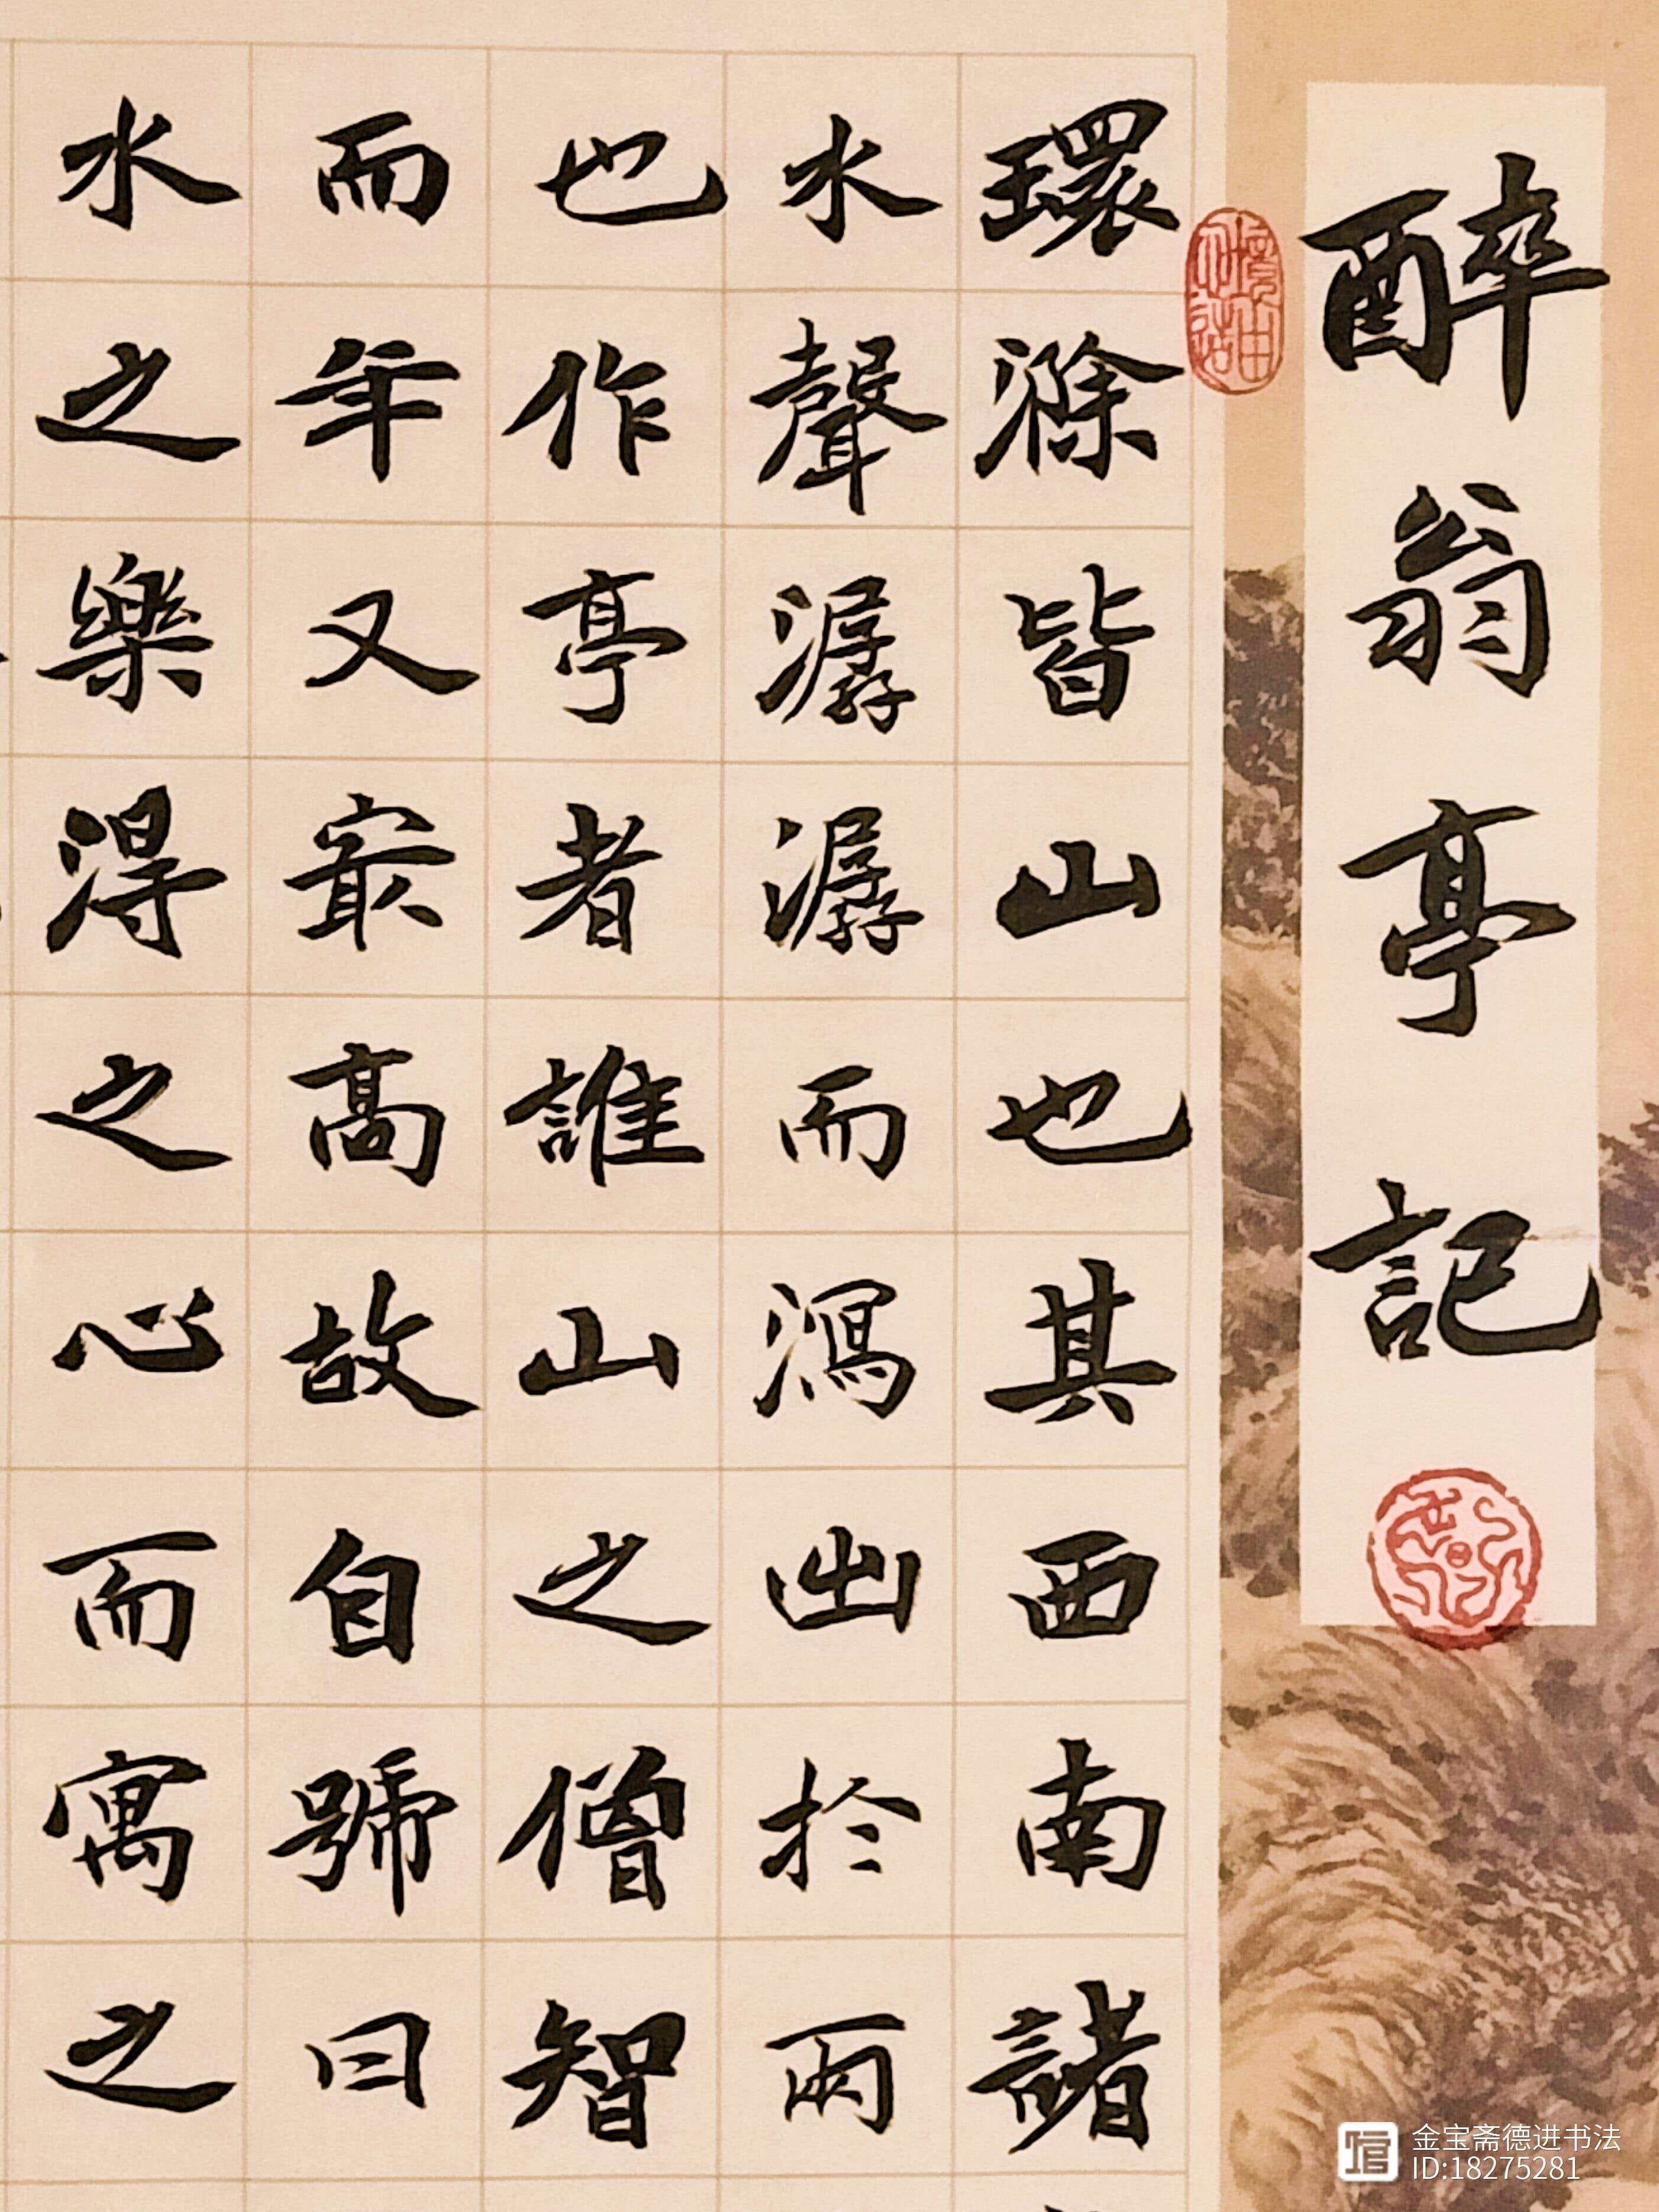 醉翁亭記
環滁皆山也其西南諸
水聲潺潺而瀉出於兩
也作亭者誰山之僧智
而年又最高故自號曰
水之樂得之心而寓之
金宝斋德进书法
ID:18275281